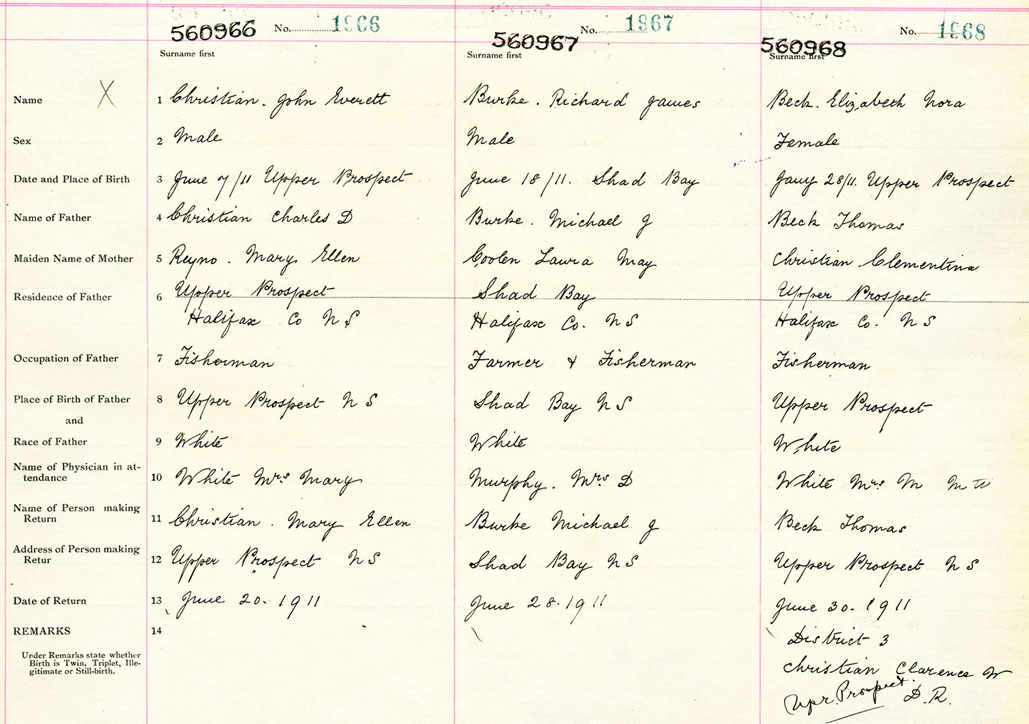 560966 No. 1966 560967 No. 1967 560968 No. 1968
Surname first Surname first Surname first
Name X 1 Christian. John Everett Burke. Richard James Beck. Elizabeth Nora
Sex 2 Male Male Female
Date and Place of Birth 3 June 7/11 Upper Prospect June 18/11. Shad Bay Jany 28/11. Upper Prospect
Name of Father 4 Christian Charles D Burke. Michael J Beck Thomas
Maiden Name of Mother 5 Reyno. Mary Ellen Coolen Laura May Christian Clementina
Residence of Father 6 Upper Prospect Shad Bay Upper Prospect
Halifax Co N S Halifax Co. N S Halifax Co. N S
Occupation of Father 7 Fisherman Farmer & Fisherman Fisherman
Place of Birth of Father 8 Upper Prospect N S Shad Bay N S Upper Prospect
and
Race of Father 9 White White White
Name of Physician in at-
tendance 10 White Mrs Mary Murphy. Mrs D White Mrs M
Name of Person making
Return 11 Christian. Mary Ellen Burke Michael J Beck Thomas
Address of Person making
Retur 12 Upper Prospect N S Shad Bay N S Upper Prospect N S
Date of Return 13 June 20. 1911 June 28. 1911 June 30. 1911
REMARKS 14 District 3
Under Remarks state whether
Birth is Twin, Triplet, Ille-
gitimate or Still-birth.
Christian Clarence W
Upr. Prospect. D.R.